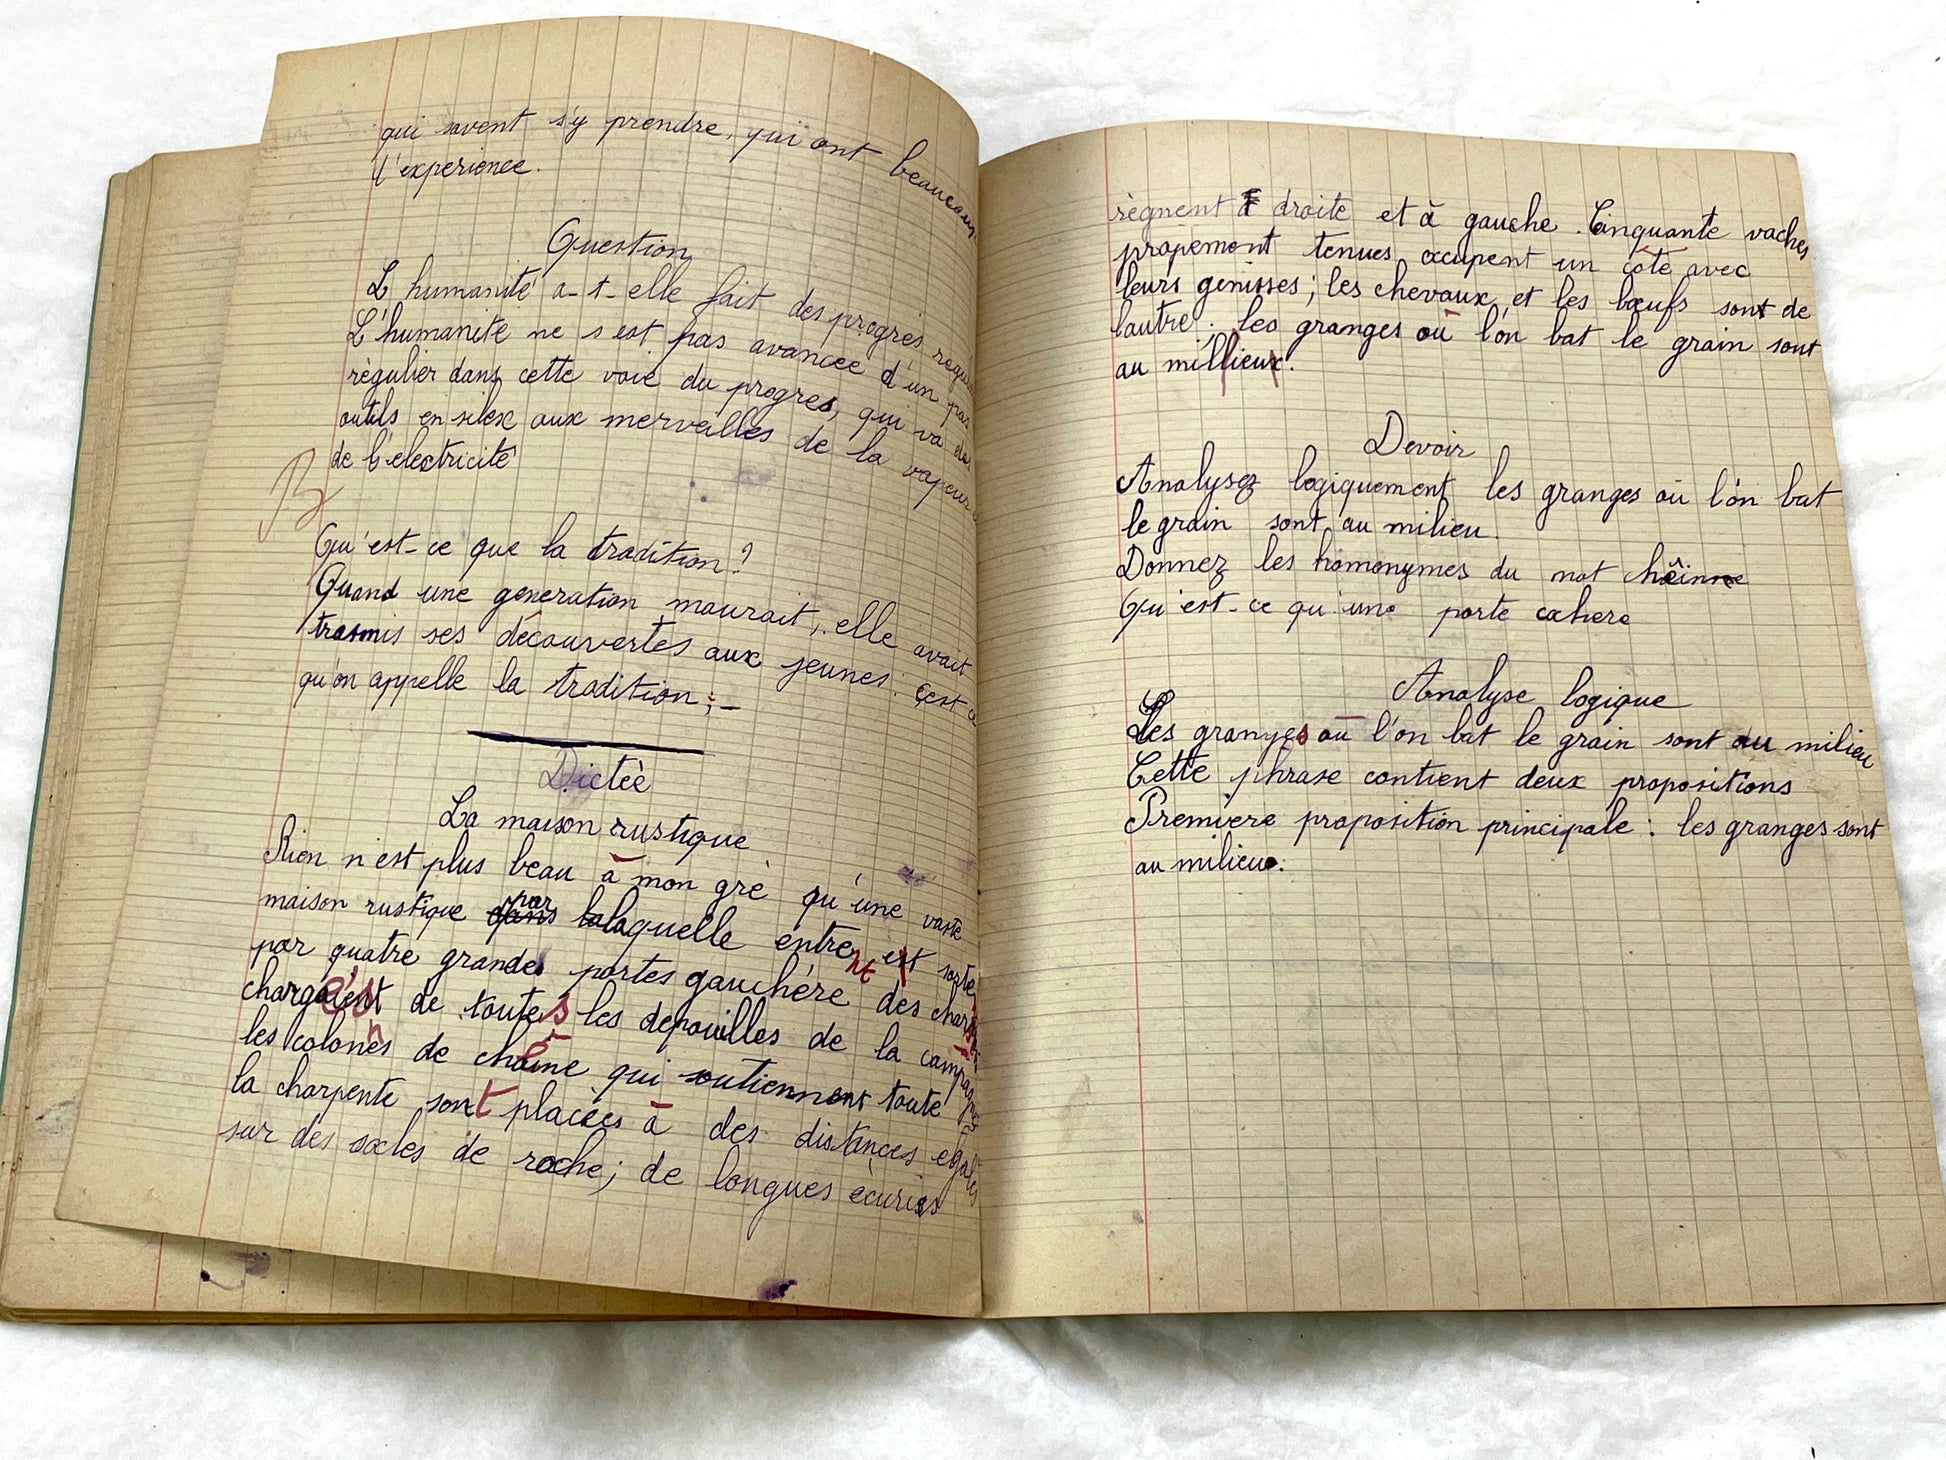 qui savent s'y prendre, qui ont beaucoup
l'experience.
Question
L'humanité a-t-elle fait des progrès
L'humanité ne s'est pas avancée d'un pas
régulier dans cette voie du progres, qui va des
outils en silex aux merveilles de la vapeur
de l'électricité
B
Qu'est-ce que la tradition?
Quand une generation mourait, elle avait
trasmis ses découvertes aux jeunes: c'est ce
qu'on appelle la tradition;-
Dictée
La maison rustique
Rien n'est plus beau à mon gré qu'une vaste
maison rustique par laquelle entrent et sorte
par quatre grandes portes gauchère des chars
chargés de toutes les depouilles de la campagne
les colonnes de chêne qui soutiennent toute
la charpente sont placées à des distances egales
sur des socles de roche; de longues écuries
règnent à droite et à gauche. Cinquante vaches
propement tenues occupent un côté avec
leurs genisses; les chevaux et les bœufs sont de
lautre. les granges où l'on bat le grain sont
au millieux.
Devoir
Analysez logiquement les granges où l'on bat
le grain sont au milieu.
Donnez les homonymes du mot
Qu'est-ce qu'une porte cohere
Analyse logique
Les granges où l'on bat le grain sont au milieu
Cette phrase contient deux propositions
Premiere proposition principale: les granges sont
au milieu.